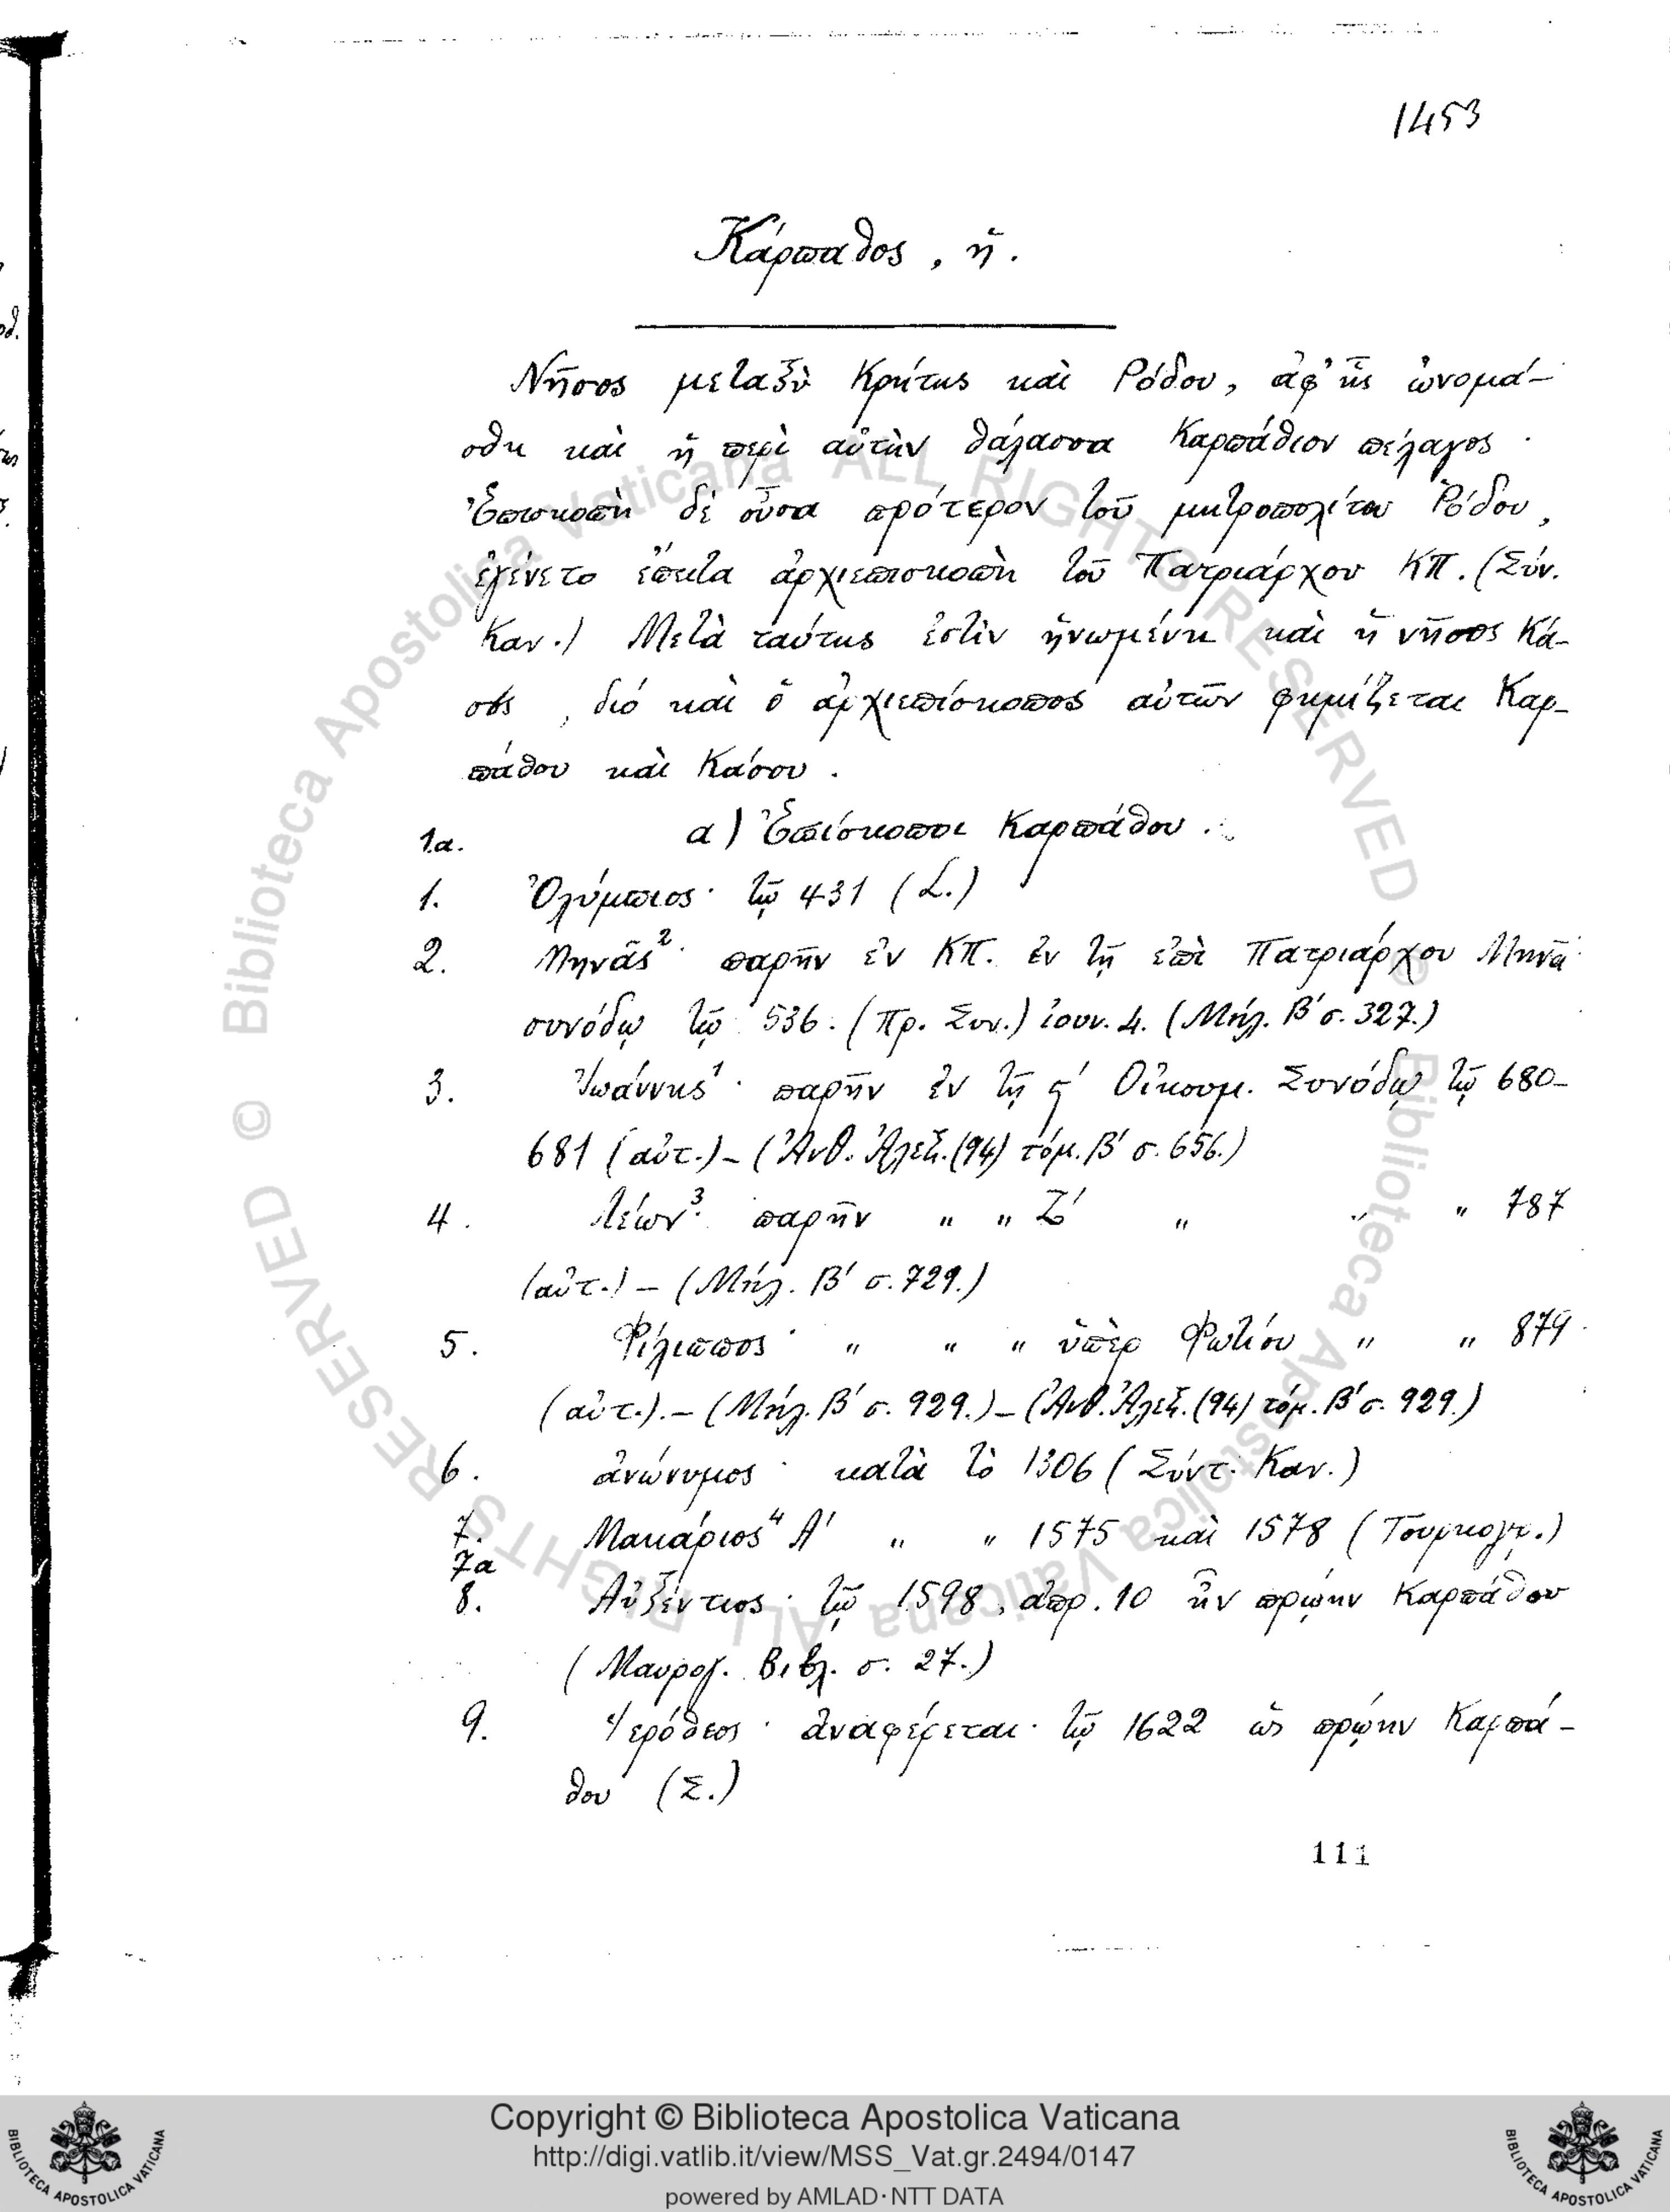 1453
Κάρπαθος, ἡ.
Νῆσος μεταξὺ Κρήτης καὶ Ρόδου, ἀφ' ἧς ὠνομά-
σθη καὶ ἡ περὶ αὐτὴν θάλασσα Καρπάθιον πέλαγος.
Ἐπισκοπὴ δὲ οὖσα πρότερον τοῦ μητροπολίτου Ῥόδου,
ἐγένετο ἔπειτα ἀρχιεπισκοπὴ τοῦ Πατριάρχου ΚΠ. (Σύν.
Καν.) Μετὰ ταύτης ἐστὶν ἡνωμένη καὶ ἡ νῆσος Κά-
σος, διό καὶ ὁ ἀρχιεπίσκοπος αὐτῶν φημίζεται Καρ-
πάθου καὶ Κάσου.
α) Ἐπίσκοποι Καρπάθου.
1α.
1. Ὀλύμπιος· τῷ 431 (L.)
2. Μηνᾶς²· παρῆν ἐν ΚΠ. ἐν τῇ ἐπὶ Πατριάρχου Μηνᾶ
συνόδῳ τῷ 536. (Πρ. Συν.) ἰουν. 4. (Μήλ. Β' σ. 327.)
3. Ἰωάννης¹· παρῆν ἐν τῇ ϛ' Οἰκουμ. Συνόδῳ τῷ 680-
681 (αὐτ.) - (Ἀνθ. Ἀλεξ. (94) τόμ. Β' σ. 656.)
4. Λέων³· παρῆν " " Ζ' " " " 787
(αὐτ.) - (Μήλ. Β' σ. 729.)
5. Φίλιππος· " " " ὑπὲρ Φωτίου " " 879
(αὐτ.). - (Μήλ. Β' σ. 929.) - (Ἀνθ. Ἀλεξ. (94) τόμ. Β' σ. 929.)
6. ἀνώνυμος· κατὰ τὸ 1306 (Σύντ. Καν.)
7. Μακάριος⁴ Α' " " 1575 καὶ 1578 (Τουρκογρ.)
7α
8. Αὐξέντιος· τῷ 1598, ἀπρ. 10 ἦν πρῴην Καρπάθου
(Μαυρογ. Βιβλ. σ. 27.)
9. Ἱερόθεος· ἀναφέρεται· τῷ 1622 ὡς πρῴην Καρπά-
θου (Σ.)
111
© Biblioteca Apostolica Vaticana ALL RIGHTS RESERVED © Biblioteca Apostolica Vaticana ALL RIGHTS RESERVED
Copyright © Biblioteca Apostolica Vaticana
http://digi.vatlib.it/view/MSS_Vat.gr.2494/0147
powered by AMLAD·NTT DATA
BIBLIOTECA APOSTOLICA VATICANA
BIBLIOTECA APOSTOLICA VATICANA